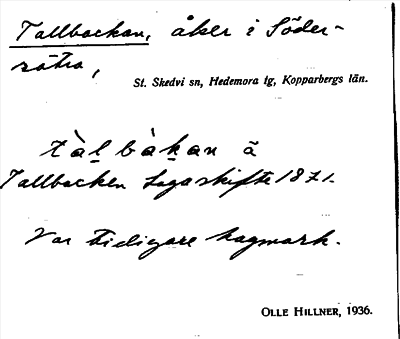 Tallbackan, åker i Söder-
sätra,
St. Skedvi sn, Hedemora tg, Kopparbergs län.
tàḷbàḳan ä
Tallbacken Lagaskifte 1871.
Var tidigare hagmark.
OLLE HILLNER, 1936.